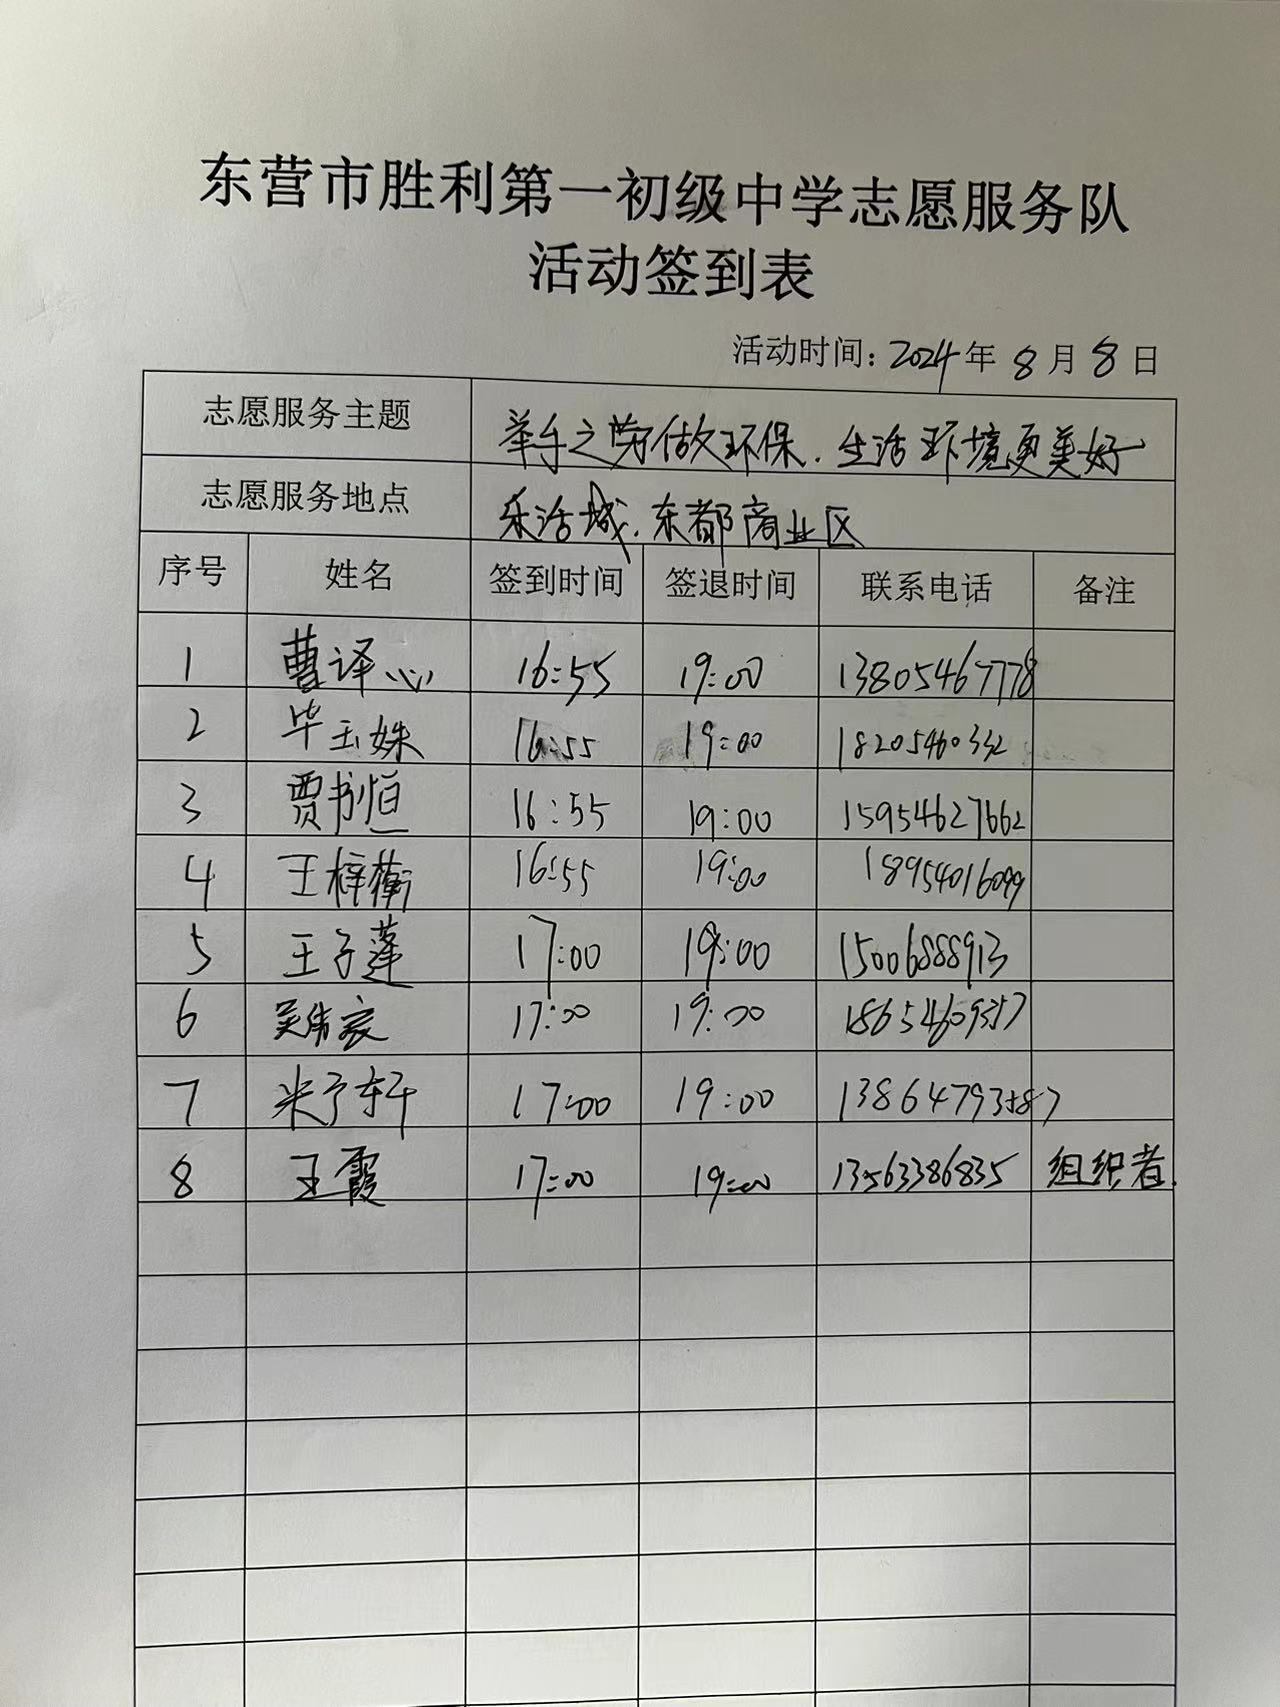 东营市胜利第一初级中学志愿服务队
活动签到表
活动时间：2024年 8月 8日
志愿服务主题 举手之劳做环保．生活环境更美好
志愿服务地点 乐活城．东都商业区
序号 姓名 签到时间 签退时间 联系电话 备注
1 曹译心 16:55 19:00 13805467778
2 毕玉姝 16:55 19:00 18205460332
3 贾书恒 16:55 19:00 15954627662
4 王梓蘅 16:55 19:00 18954016099
5 王子蓬 17:00 19:00 15006888913
6 17:00 19:00 18654609357
7 米予轩 17:00 19:00 13864793587
8 王霞 17:00 19:00 13563386835 组织者.